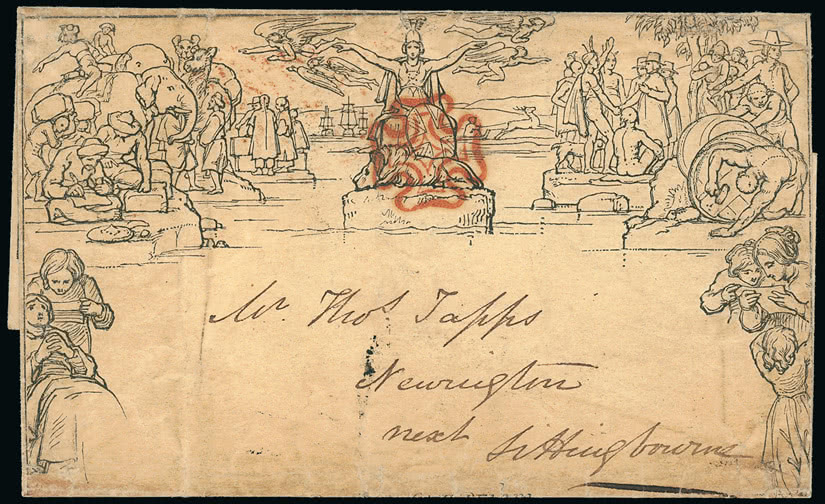 Mr. Thos Tapps
Newington
next Sittingbourne